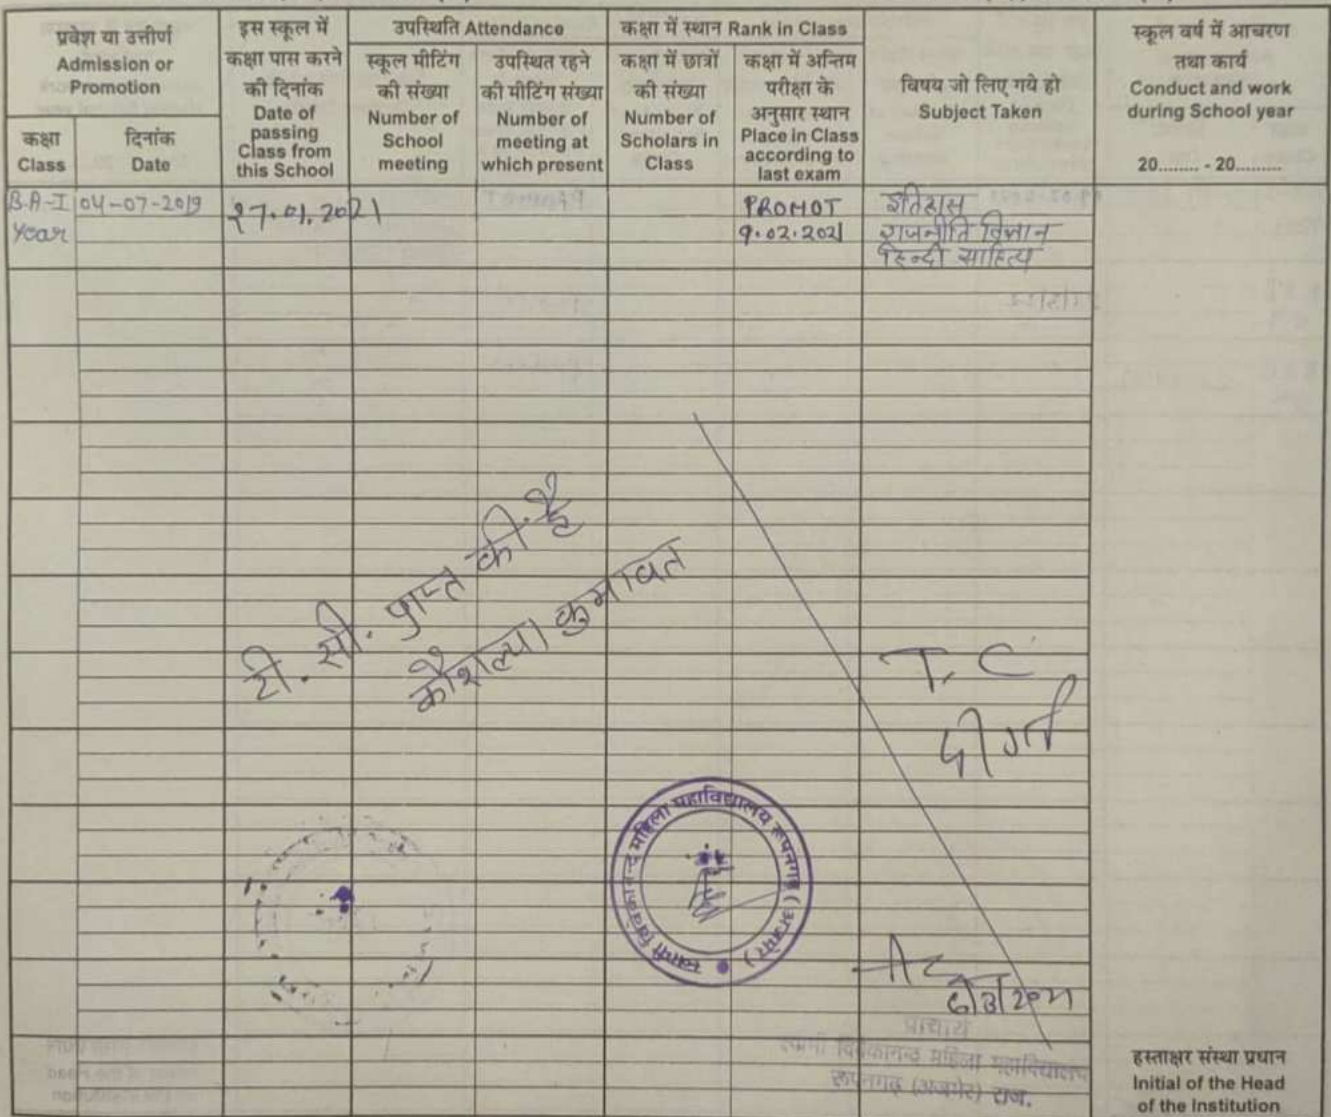 प्रवेश या उत्तीर्ण
Admission or
Promotion
कक्षा
Class
दिनांक
Date
इस स्कूल में
कक्षा पास करने
की दिनांक
Date of
passing
Class from
this School
उपस्थिति Attendance
स्कूल मीटिंग
की संख्या
Number of
School
meeting
उपस्थित रहने
की मीटिंग संख्या
Number of
meeting at
which present
कक्षा में स्थान Rank in Class
कक्षा में छात्रों
की संख्या
Number of
Scholars in
Class
कक्षा में अन्तिम
परीक्षा के
अनुसार स्थान
Place in Class
according to
last exam
विषय जो लिए गये हो
Subject Taken
स्कूल वर्ष में आचरण
तथा कार्य
Conduct and work
during School year
20......... - 20..........
B.A-I 04-07-2019 27.01.2021 PROMOT इतिहास
Year 9.02.2021 राजनीति विज्ञान
हिन्दी साहित्य
टी. सी. प्राप्त की है
कौशल्या कुमावत
T. C
दी गई
स्वामी विवेकानन्द महिला महाविद्यालय रूपनगढ़ (अजमेर)
प्राचार्य
स्वामी विवेकानन्द महिला महाविद्यालय
रूपनगढ़ (अजमेर) राज.
हस्ताक्षर संस्था प्रधान
Initial of the Head
of the Institution